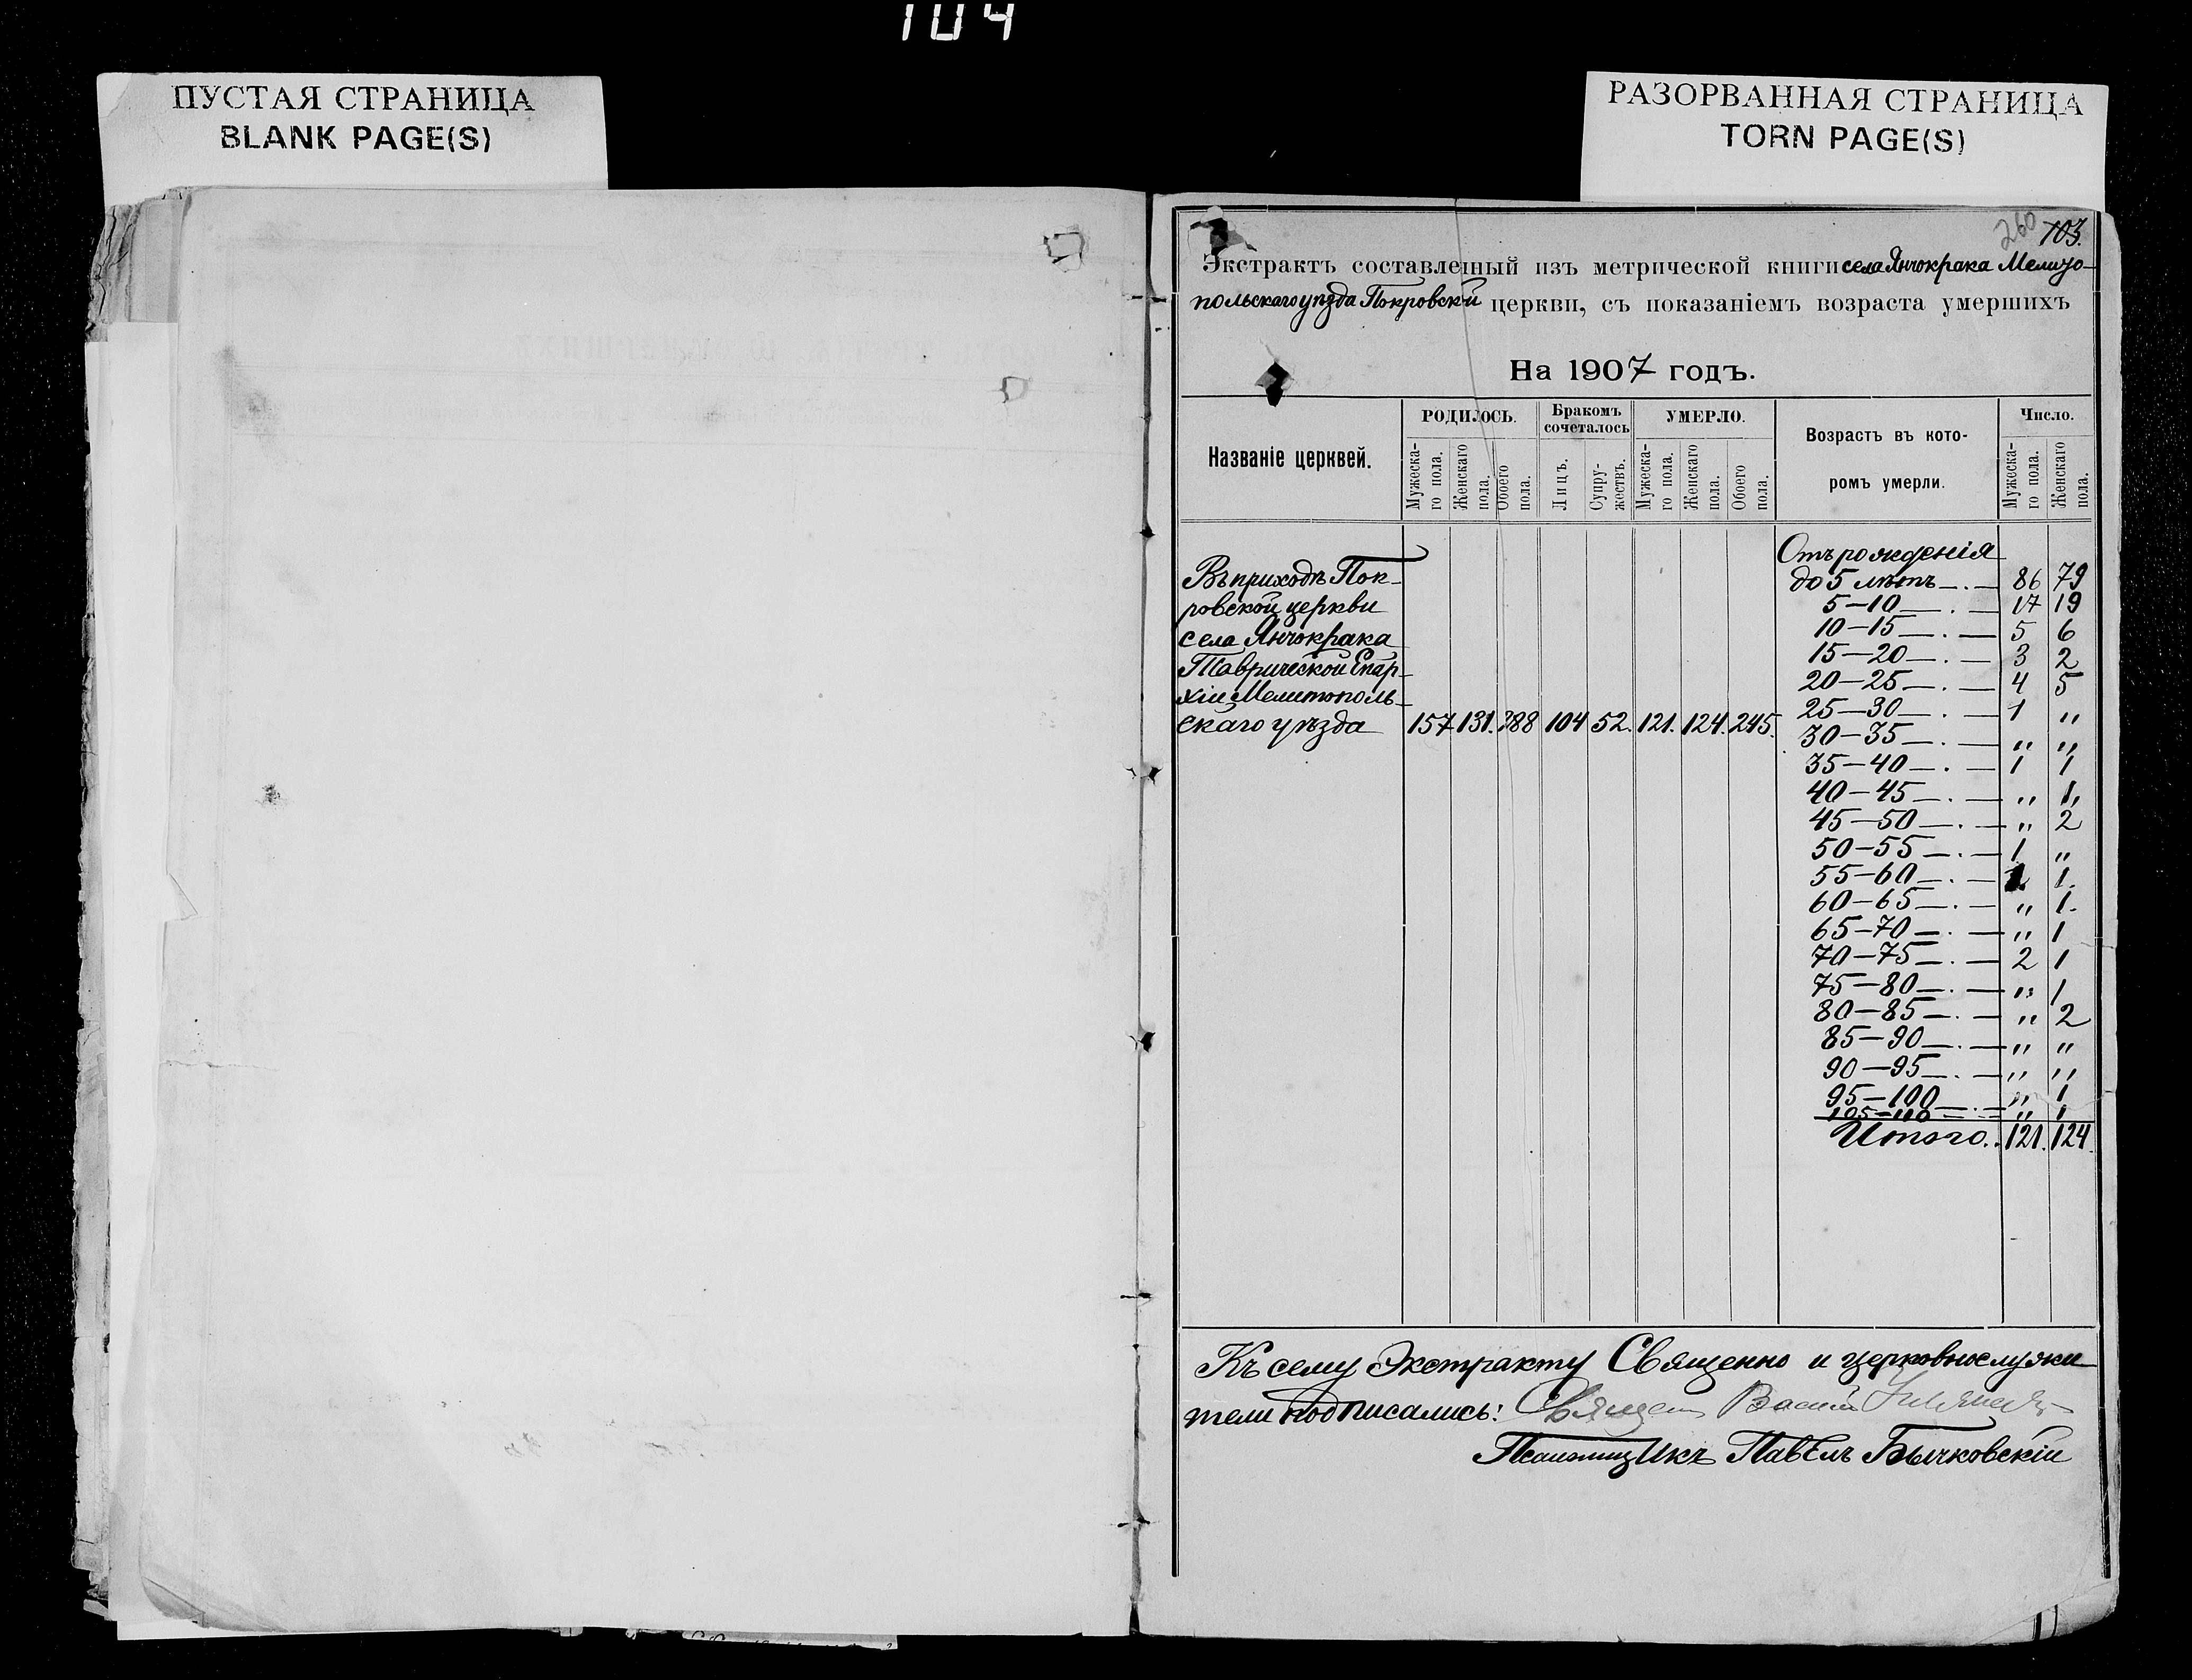 104
ПУСТАЯ СТРАНИЦА
BLANK PAGE(S)
РАЗОРВАННАЯ СТРАНИЦА
TORN PAGE(S)
260 103.
Экстрактъ составленный изъ метрической книги села Янчокрака Мелито-
польскаго уѣзда Покровской церкви, съ показаніемъ возраста умершихъ
На 1907 годъ.
Названіе церквей.
РОДИЛОСЬ.
Мужеска-
го пола.
Женскаго
пола.
Обоего
пола.
Бракомъ
сочеталось
Лицъ.
Супру-
жествъ.
УМЕРЛО.
Мужеска-
го пола.
Женскаго
пола.
Обоего
пола.
Возрастъ въ кото-
ромъ умерли.
Число.
Мужеска-
го пола.
Женскаго
пола.
Въ приходѣ Пок-
ровской церкви
села Янчокрака
Таврической Епар-
хіи Мелитополь-
скаго уѣзда 157 131. 288 104 52. 121. 124. 245.
Отъ рожденія
до 5 лѣтъ —.— 86 79
5—10 —.— 17 19
10—15 —.— 5 6
15—20 —.— 3 2
20—25 —.— 4 5
25—30 —.— 1 „
30—35 —.— „ „
35—40 —.— 1 1
40—45 —.— „ 1,
45—50 —.— „ 2
50—55 —.— 1 „
55—60 —.— 1.
60—65 —.— „ 1.
65—70 —.— „ 1
70—75 —.— 2 1
75—80 —.— „ 1
80—85 —.— „ 2
85—90 —.— „ „
90—95 —.— „ „
95—100 —.— „ 1
105—110 — — „ 1
Итого.. 121. 124.
Къ сему Экстракту Священно и церковнослужи-
тели подписались: Священ Васил
Псаломщикъ Павелъ Бычковскій